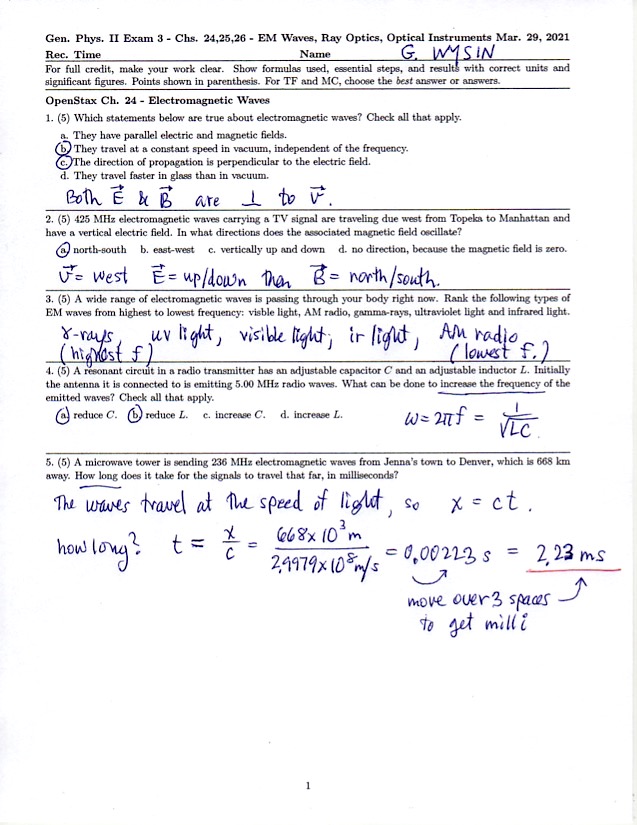 Gen. Phys. II Exam 3 - Chs. 24,25,26 - EM Waves, Ray Optics, Optical Instruments Mar. 29, 2021
Rec. Time Name G. WYSIN
For full credit, make your work clear. Show formulas used, essential steps, and results with correct units and
significant figures. Points shown in parenthesis. For TF and MC, choose the best answer or answers.
OpenStax Ch. 24 - Electromagnetic Waves
1. (5) Which statements below are true about electromagnetic waves? Check all that apply.
a. They have parallel electric and magnetic fields.
b. They travel at a constant speed in vacuum, independent of the frequency.
c. The direction of propagation is perpendicular to the electric field.
d. They travel faster in glass than in vacuum.
Both E⃗ & B⃗ are ⊥ to v⃗.
2. (5) 425 MHz electromagnetic waves carrying a TV signal are traveling due west from Topeka to Manhattan and
have a vertical electric field. In what directions does the associated magnetic field oscillate?
a. north-south b. east-west c. vertically up and down d. no direction, because the magnetic field is zero.
v⃗ = west E⃗ = up/down then B⃗ = north/south.
3. (5) A wide range of electromagnetic waves is passing through your body right now. Rank the following types of
EM waves from highest to lowest frequency: visble light, AM radio, gamma-rays, ultraviolet light and infrared light.
γ-rays, uv light, visible light, ir light, AM radio
(highest f) (lowest f.)
4. (5) A resonant circuit in a radio transmitter has an adjustable capacitor C and an adjustable inductor L. Initially
the antenna it is connected to is emitting 5.00 MHz radio waves. What can be done to increase the frequency of the
emitted waves? Check all that apply.
a. reduce C. b. reduce L. c. increase C. d. increase L. ω = 2πf = 1/√LC.
5. (5) A microwave tower is sending 236 MHz electromagnetic waves from Jenna's town to Denver, which is 668 km
away. How long does it take for the signals to travel that far, in milliseconds?
The waves travel at the speed of light, so x = ct.
how long? t = x/c = 668×10³ m / 2.9979×10⁸ m/s = 0.00223 s = 2.23 ms
move over 3 spaces
to get milli
1